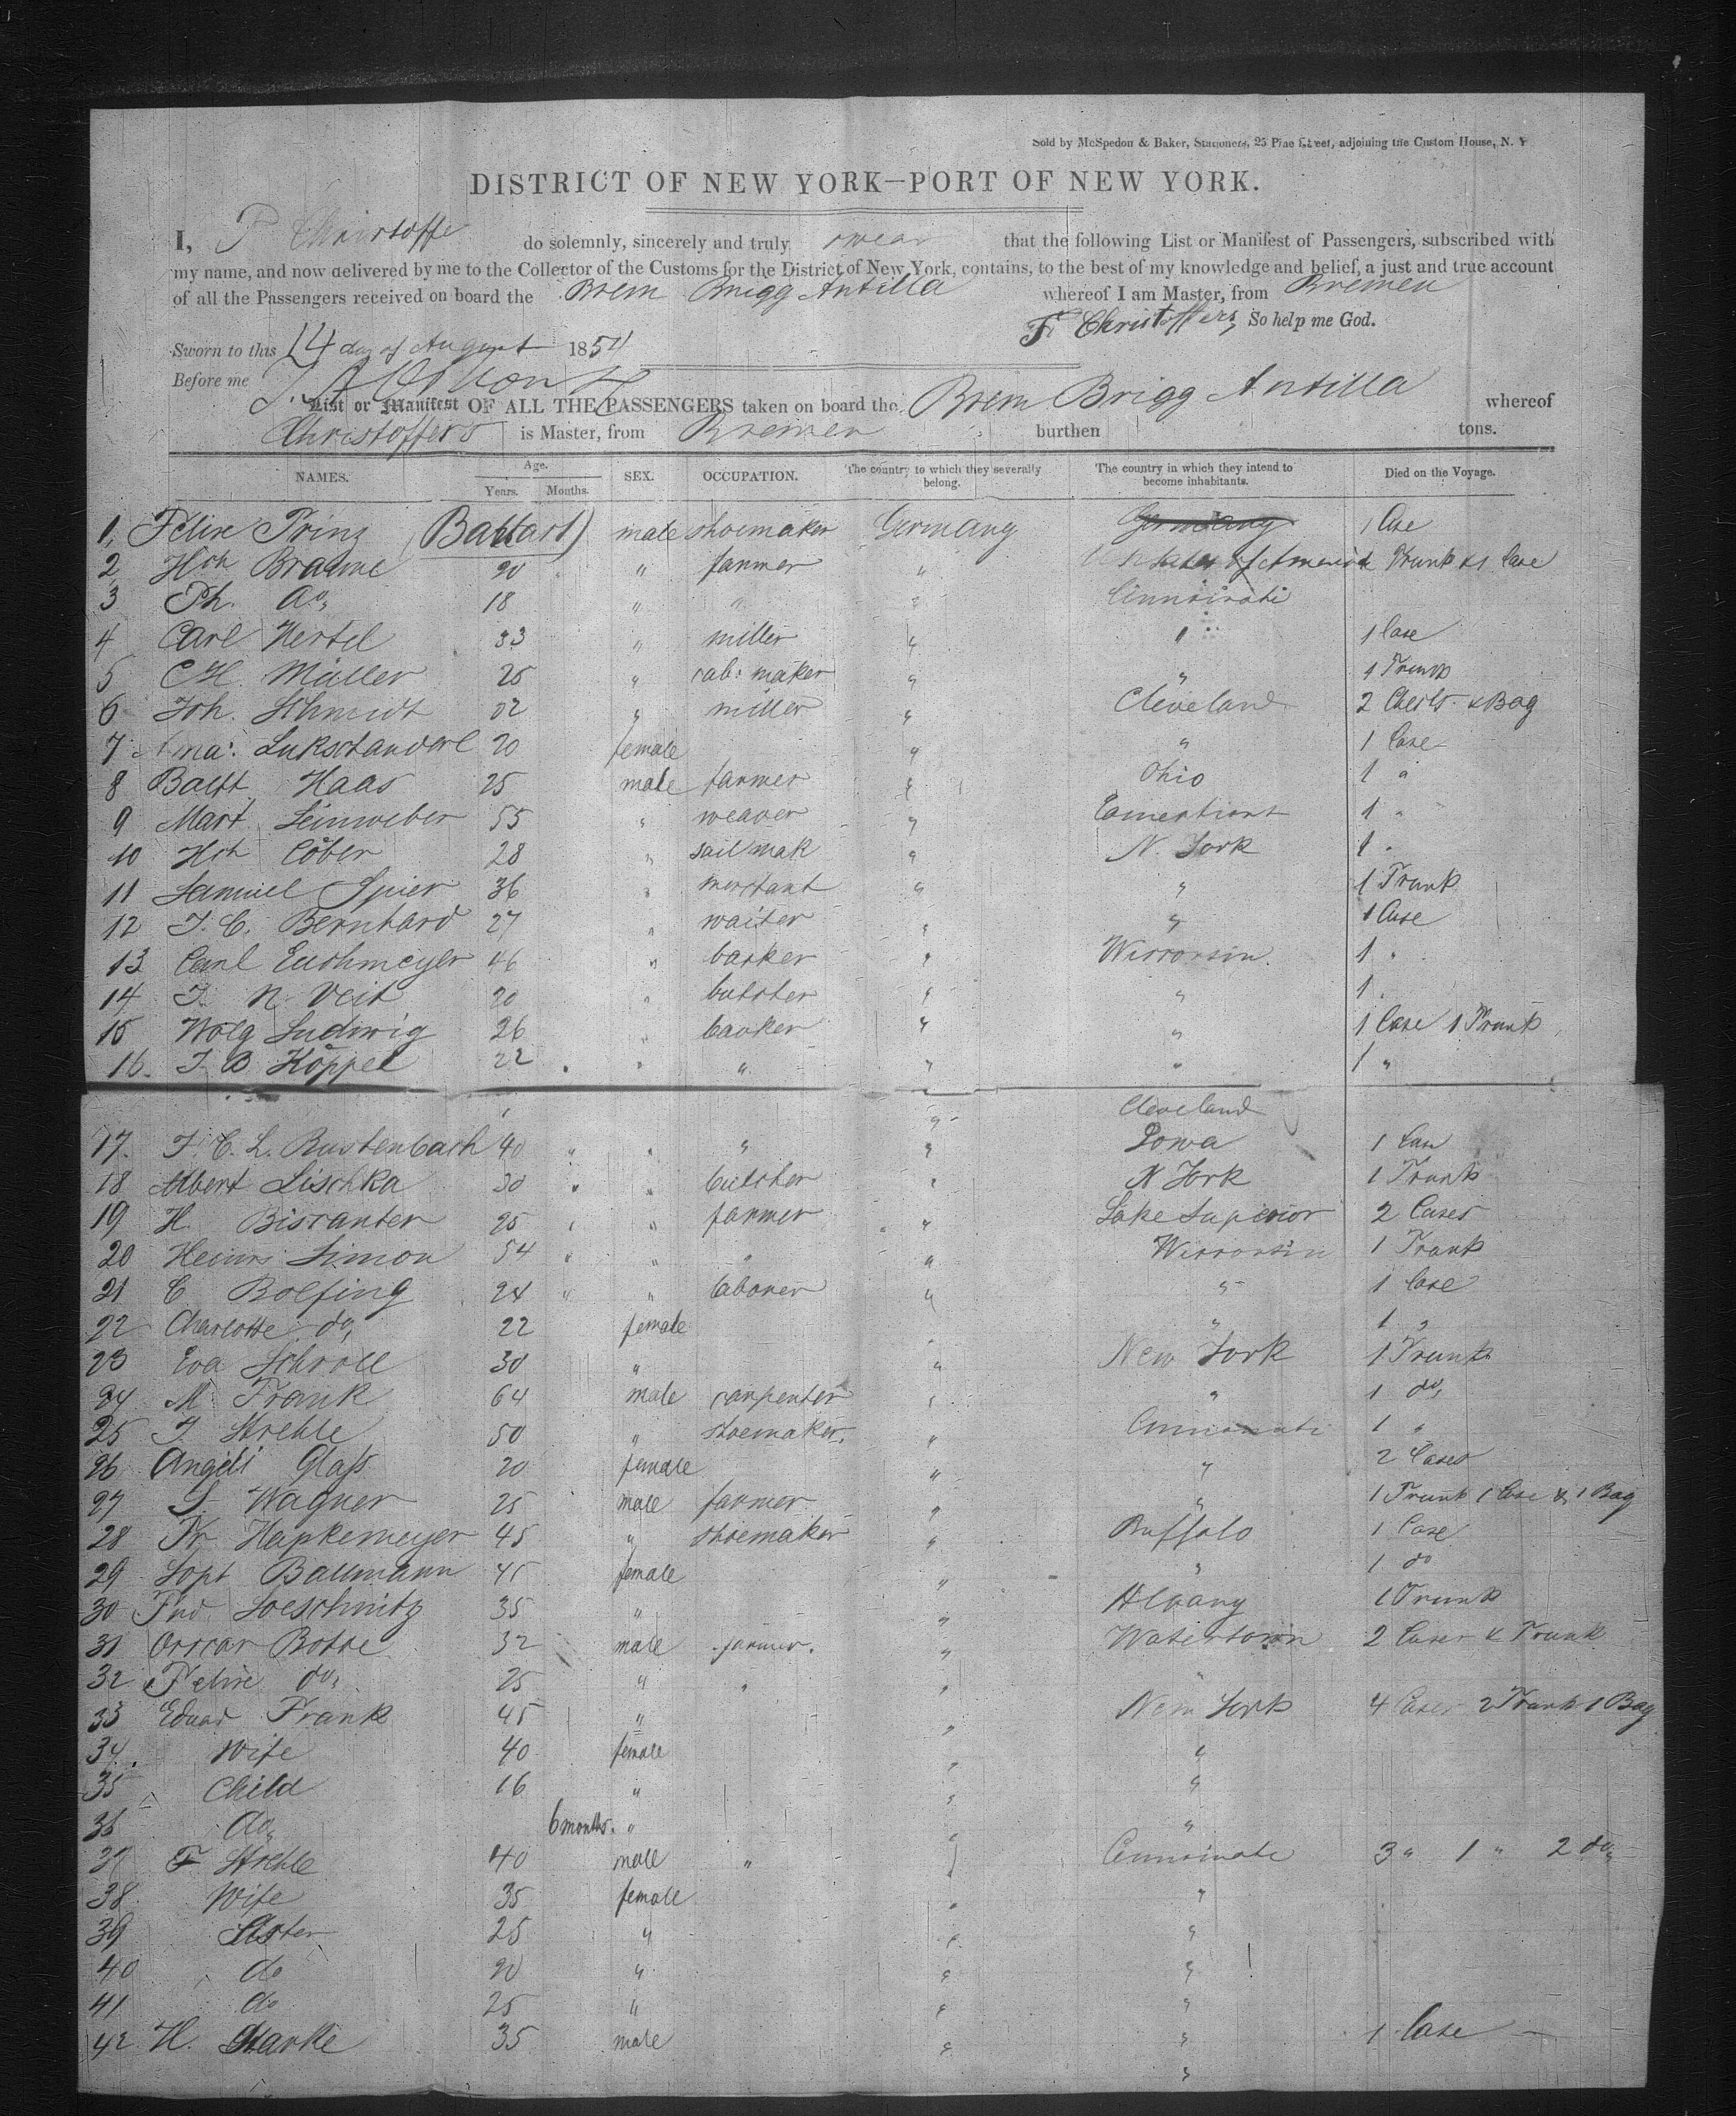 Sold by McSpedon & Baker, Stationers, 25 Pine Street, adjoining the Custom House, N. Y
DISTRICT OF NEW YORK—PORT OF NEW YORK.
I, P Christoffe do solemnly, sincerely and truly swear that the following List or Manifest of Passengers, subscribed with
my name, and now delivered by me to the Collector of the Customs for the District of New York, contains, to the best of my knowledge and belief, a just and true account
of all the Passengers received on board the Brem Brigg Antilla whereof I am Master, from Bremen
F. Christoffers So help me God.
Sworn to this 14 day of August 1854
Before me
List or Manifest OF ALL THE PASSENGERS taken on board the Brem Brigg Antilla whereof
Christoffers is Master, from Bremen burthen tons.
NAMES. Age. Years. Months. SEX. OCCUPATION. The country to which they severally belong. The country in which they intend to become inhabitants. Died on the Voyage.
1, Felix Prinz male shoemaker Germany Germany 1 Case
2 Hch Braune 20 " farmer " States of America Trunk & 1 Case
3 Ph. do, 18 " " " Cinncinati
4 Carl Hertel 33 " miller " " 1 Case
5 C H. Müller 25 " cab: maker " " 1 Trunk
6 Joh. Schmidt 32 " miller " Cleveland 2 Chests & Bag
7 20 female " " 1 Case
8 Balt Haas 25 male farmer " Ohio 1 "
9 Mart Leinweber 55 " weaver " 1 "
10 Hch Cöber 28 " sailmak " N. York 1 "
11 Samuel Spier 36 " merchant " " 1 Trunk
12 J. C. Bernhard 27 " waiter " " 1 Case
13 Carl Euchmeyer 46 " " Wisconsin. 1 "
14 J. N. Veit 20 " butcher " " 1 "
15 Wolg Ludwig 26 " " " 1 Case 1 Trunk
16. J. B. Köppel 22 " " " " 1 "
" Cleveland
17. J. C. L. Rustenbach 40 " " " " Iowa 1 Case
18 Albert Lischka 30 " " butcher " N York 1 Trunk
19 H. Biscanter 25 " " farmer " Lake Superior 2 Cases
20 Heinr Simon 54 " " " " Wisconsin 1 Trunk
21 C Bolfing 24 " " laborer " " 1 Case
22 Charlotte do, 22 female " 1 "
23 Eva Schroll 30 " " New York 1 Trunk
24 M. Frank 64 male carpenter " " 1 do,
25 J Strehle 50 " shoemaker. " Cinncinati 1 "
26 Angeli Glass 20 female " " 2 Cases
27 S. Wagner 25 male farmer " " 1 Trunk 1 Case & 1 Bag
28 Fr Hapkemeyer 45 " shoemaker " Buffalo 1 Case
29 Soph Ballmann 45 female " " 1 do
30 Frd. Loeschnitz 35 " " Albany 1 Trunk
31 Osscar Botte 32 male farmer. " Watertown 2 Cases & Trunk
32 Felix do, 25 " " " "
33 Eduad Frank 45 " " New York 4 Cases 2 Trunk 1 Bag
34. Wife 40 female " "
35 Child 16 " " "
36 do, 6 months. " " "
37 F Strehle 40 male " " Cinncinate 3 " 1 " 2 do,
38 Wife 35 female " "
39 Sister 25 " " "
40 do 20 " " "
41 do 25 " " "
42 H. Starke 35 male " " 1 Case
"